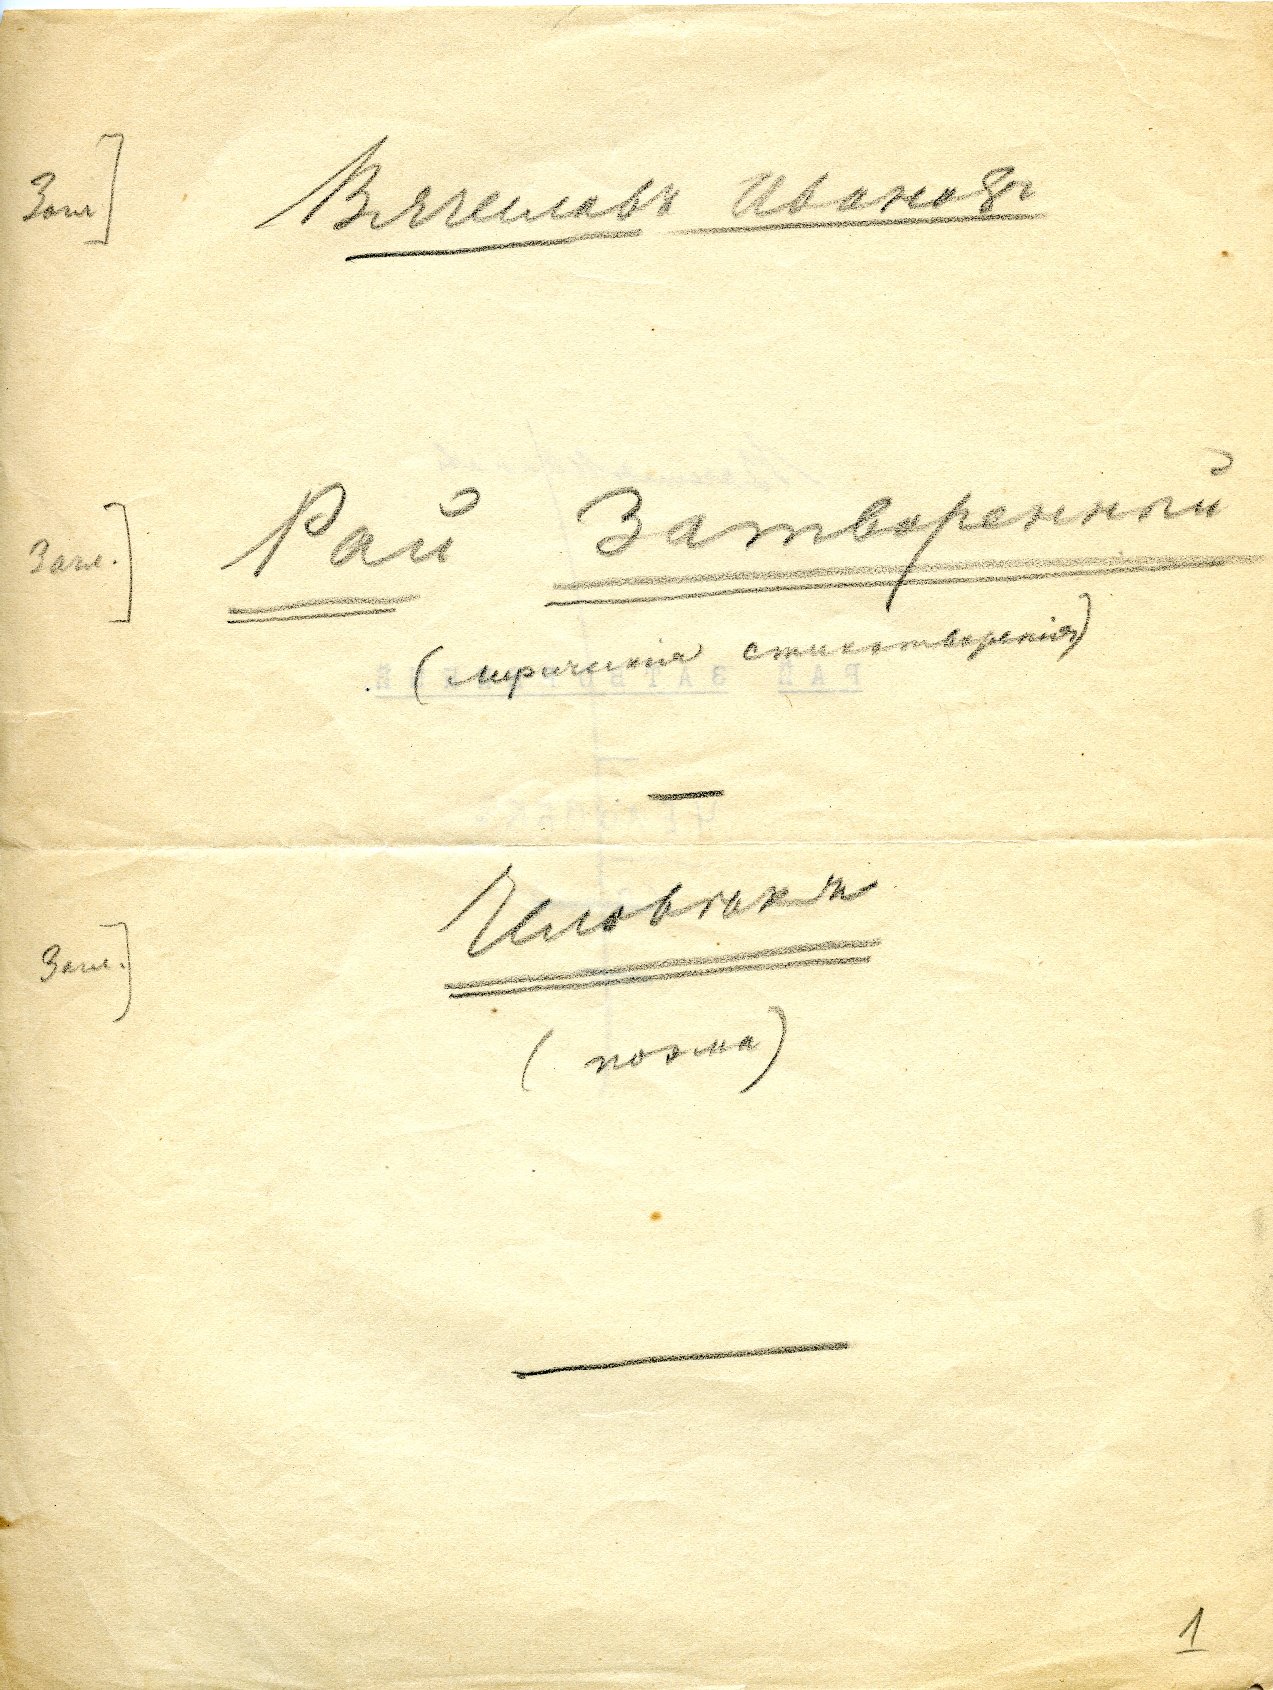 Загл] Вячеславъ Ивановъ
Загл.] Рай Затворенный
(лирическія стихотворенія)
Загл.] Человѣкъ
(поэма)
1